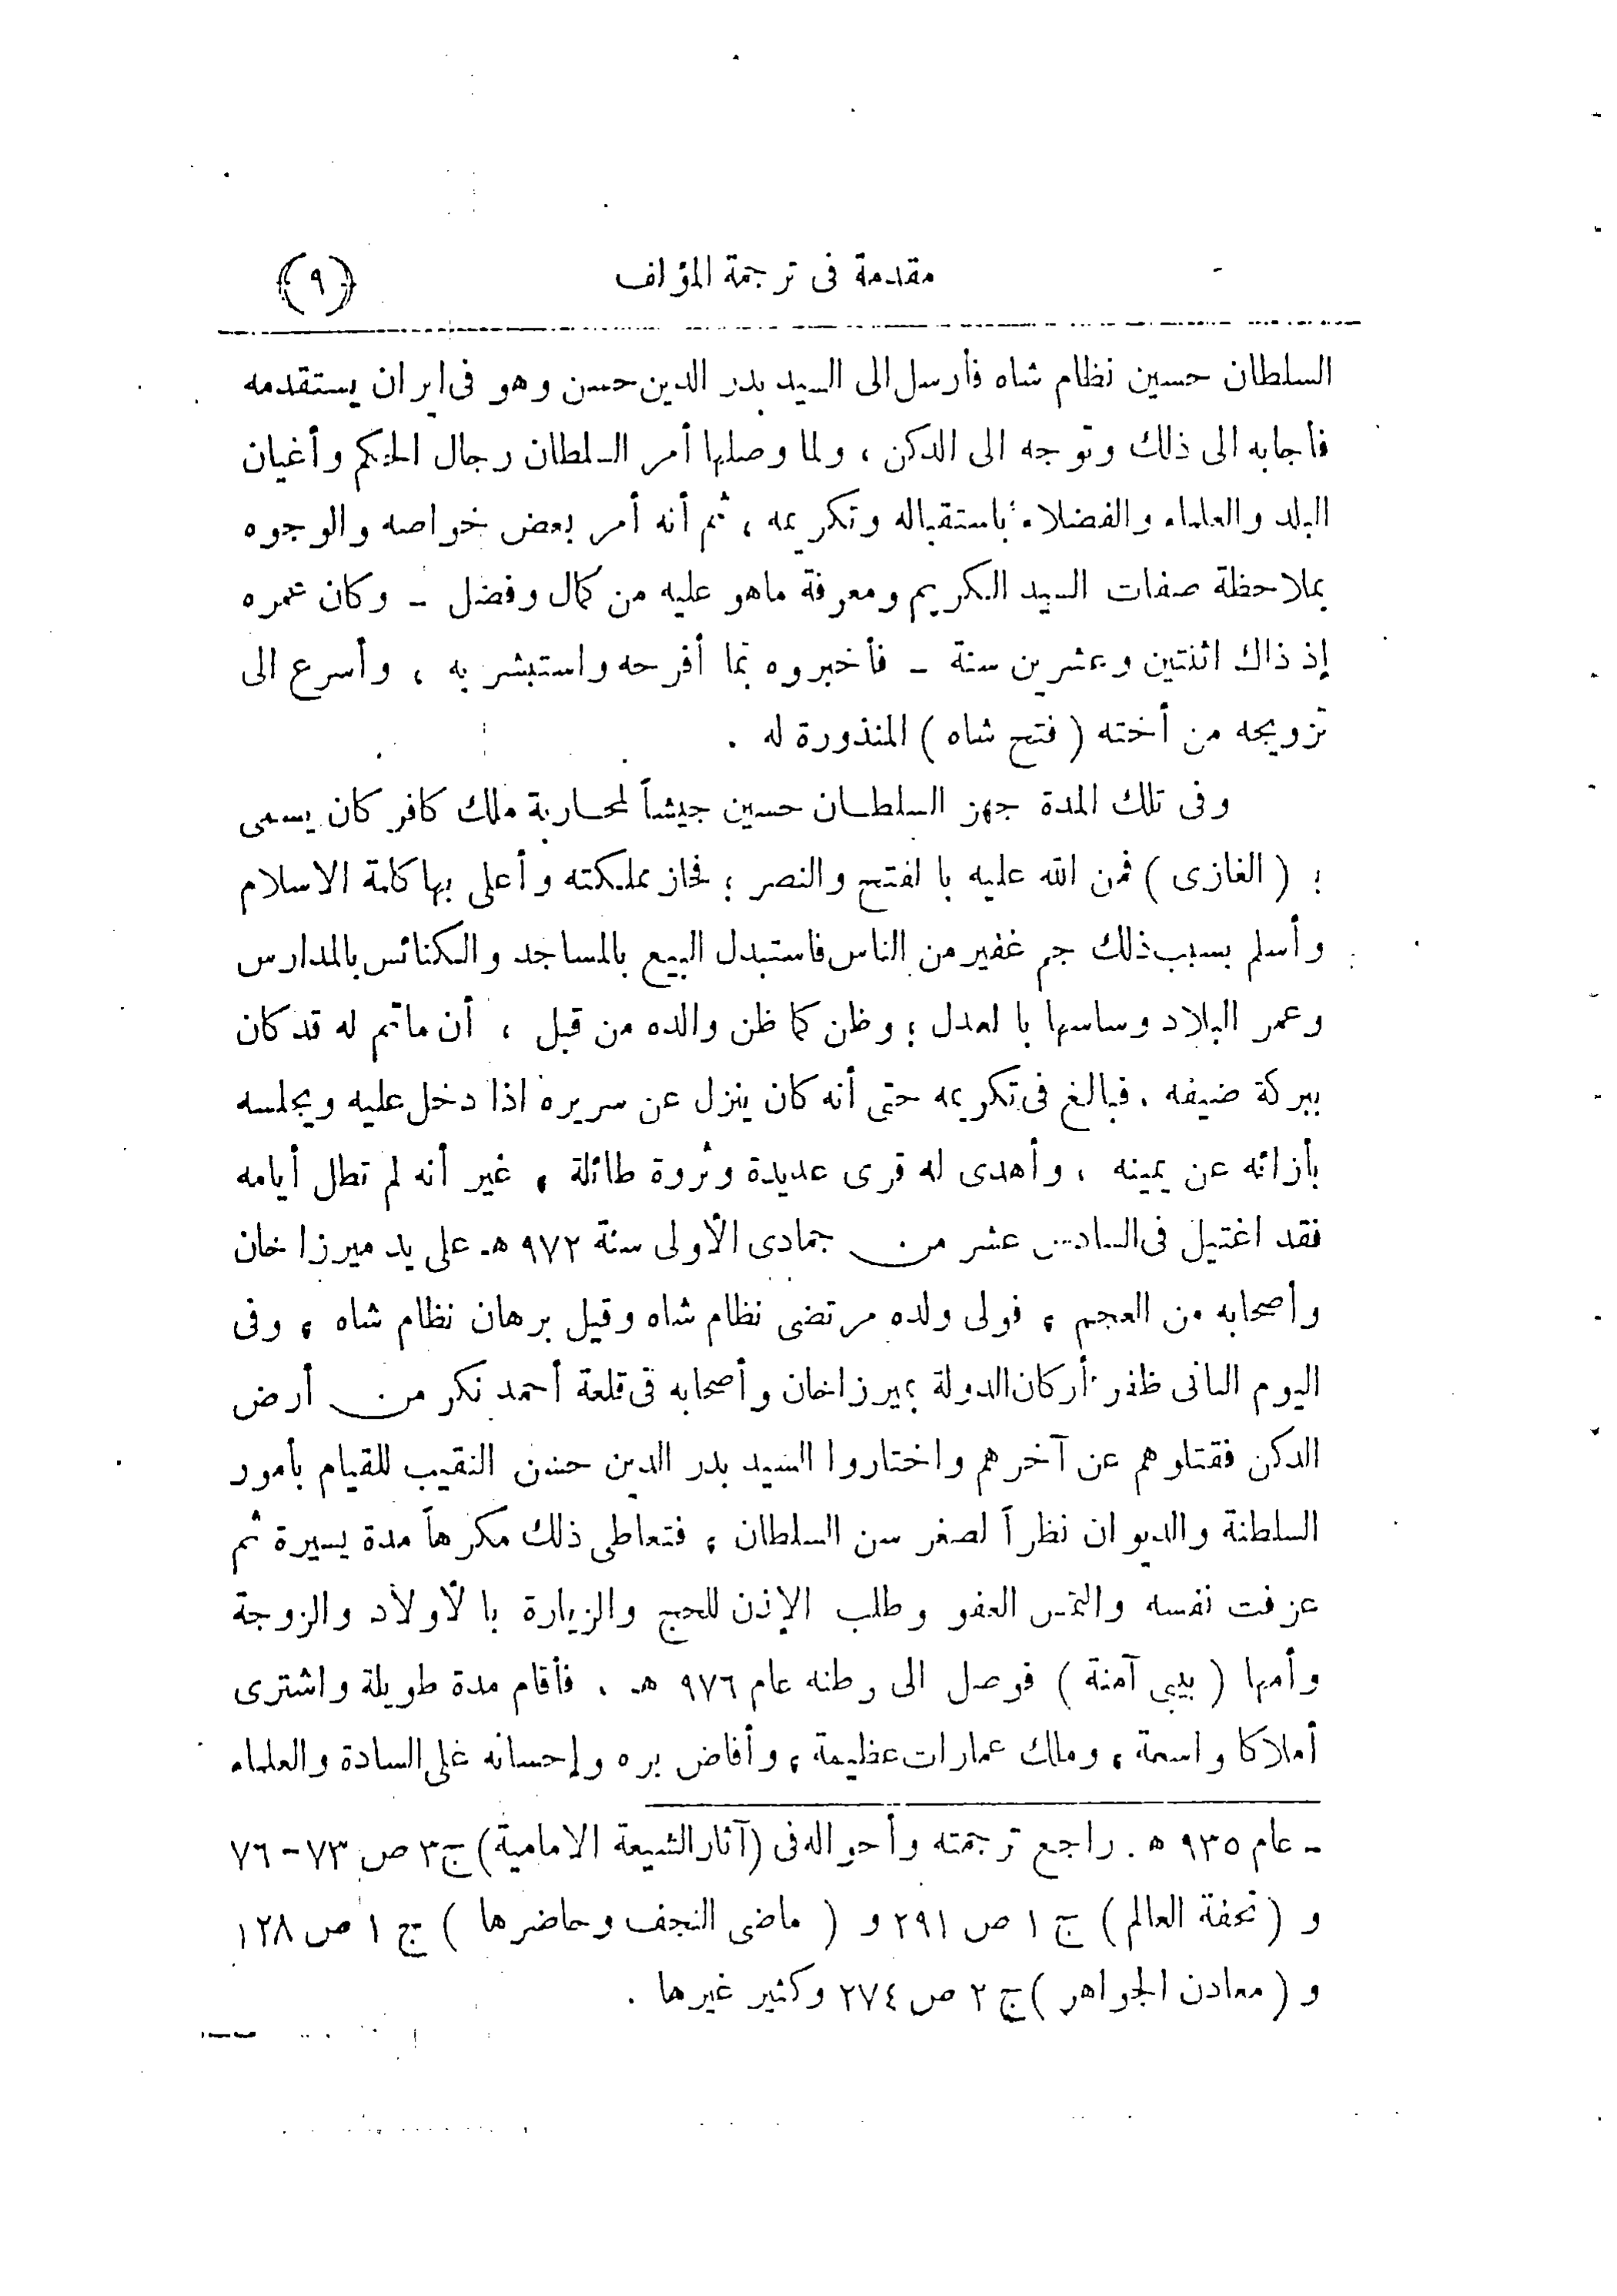 مقدمة فى ترجمة المؤلف (٩)
السلطان حسين نظام شاه فأرسل الى السيد بدر الدين حسن وهو فى ايران يستقدمه
فأجابه الى ذلك وتوجه الى الدكن ، ولما وصلها أمر السلطان رجال الحكم وأعيان
البلد والعلماء والفضلاء باستقباله وتكريمه ، ثم أنه أمر بعض خواصه والوجوه
بملاحظة صفات السيد الكريم ومعرفة ماهو عليه من كمال وفضل - وكان عمره
إذ ذاك اثنتين وعشرين سنة - فأخبروه بما أفرحه واستبشر به ، وأسرع الى
تزويجه من أخته ( فتح شاه ) المنذورة له .
وفى تلك المدة جهز السلطان حسين جيشاً لمحاربة ملك كافر كان يسمى
؛ ( الغازى ) فمن الله عليه بالفتح والنصر ؛ فحاز مملكته وأعلى بها كلمة الاسلام
وأسلم بسبب ذلك جم غفير من الناس فاستبدل البيع بالمساجد والكنائس بالمدارس
وعمر البلاد وساسها بالعدل ؛ وظن كما ظن والده من قبل ، أن ماتم له قد كان
ببركة ضيفه . فبالغ فى تكريمه حتى أنه كان ينزل عن سريره اذا دخل عليه ويجلسه
بأزائه عن يمينه ، وأهدى له قرى عديدة وثروة طائلة ، غير أنه لم تطل أيامه
فقد اغتيل فى السادس عشر من جمادى الأولى سنة ٩٧٢ هـ على يد ميرزا خان
وأصحابه من العجم ، فولى ولده مرتضى نظام شاه وقيل برهان نظام شاه ، وفى
اليوم الثانى ظفر أركان الدولة بميرزاخان وأصحابه فى قلعة أحمد نكر من أرض
الدكن فقتلوهم عن آخرهم واختاروا السيد بدر الدين حسن النقيب للقيام بأمور
السلطنة والديوان نظراً لصغر سن السلطان ، فتعاطى ذلك مكرهاً مدة يسيرة ثم
عزفت نفسه والتمس العفو وطلب الإذن للحج والزيارة بالأولاد والزوجة
وأمها ( بيبى آمنة ) فوصل الى وطنه عام ٩٧٦ هـ . فأقام مدة طويلة واشترى
أملاكا واسعة ، وملك عمارات عظيمة ، وأفاض بره وإحسانه على السادة والعلماء
- عام ٩٣٥ ه . راجع ترجمته وأحواله فى (آثار الشيعة الامامية) ج ٣ ص ٧٣ - ٧٦
و ( تحفة العالم ) ج ١ ص ٢٩١ و ( ماضى النجف وحاضرها ) ج ١ ص ١٢٨
و ( معادن الجواهر ) ج ٢ ص ٢٧٤ وكثير غيرها .